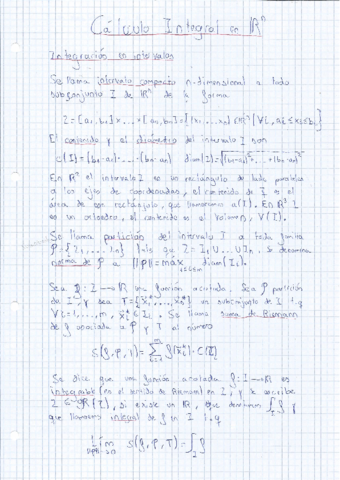 Cálculo Integral en ℝⁿ
Integración en intervalos
Se llama intervalo compacto n-dimensional a todo
subconjunto I de ℝⁿ de la forma
I = [a₁, b₁] x ... x [aₙ, bₙ] = {(x₁, ..., xₙ) ∈ ℝⁿ | ∀i, aᵢ ≤ xᵢ ≤ bᵢ}
El contenido y el diámetro del intervalo I son
c(I) = (b₁-a₁) ... (bₙ-aₙ) diam(I) = √((b₁-a₁)² + ... + (bₙ-aₙ)²)
En ℝ² el intervalo I es un rectángulo de lados paralelos
a los ejes de coordenadas, el contenido de I es el
área de ese rectángulo, que llamaremos a(I). En ℝ³ I
es un ortoedro, el contenido es el volumen, V(I).
Se llama partición del intervalo I a toda familia
P = {I₁, ..., Iₘ} tals que I = I₁ ∪ ... ∪ Iₘ. Se denomina
norma de P a ||P|| = max diam(Iᵢ).
1≤i≤m
Sea f: I → ℝ una función acotada. Sea P partición
de I y sea T = {x₁*, ..., xₘ*} un subconjunto de I t.q
∀i = 1, ..., m, xᵢ* ∈ Iᵢ. Se llama suma de Riemann
de f asociada a P y T al número
S(f, P, T) = Σ f(xᵢ*) · c(Iᵢ)
Se dice que una función acotada f: I → ℝ es
integrable (en el sentido de Riemann) en I, y se escribe
f ∈ R(I), si existe un ℝ, que denotamos ∫ f y
que llamamos integral de f en I t.q
lím S(f, P, T) = ∫ f
||P||→0